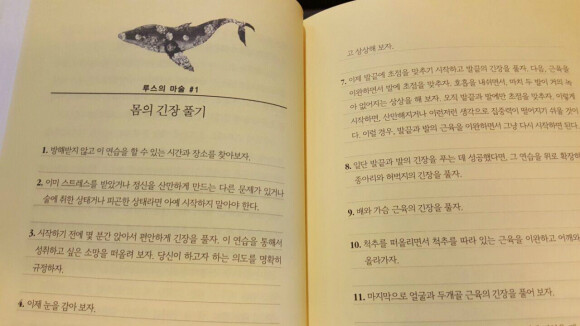 루스의 마술 #1
몸의 긴장 풀기
1. 방해받지 않고 이 연습을 할 수 있는 시간과 장소를 찾아보자.
2. 이미 스트레스를 받았거나 정신을 산만하게 만드는 다른 문제가 있거나
술에 취한 상태거나 피곤한 상태라면 아예 시작하지 말아야 한다.
3. 시작하기 전에 몇 분간 앉아서 편안하게 긴장을 풀자. 이 연습을 통해서
성취하고 싶은 소망을 떠올려 보자. 당신이 하고자 하는 의도를 명확히
규정하자.
4. 이제 눈을 감아 보자.
고 상상해 보자.
7. 이제 발끝에 초점을 맞추기 시작하고 발끝의 긴장을 풀자. 다음, 근육을
이완하면서 발에 초점을 맞추자. 호흡을 내쉬면서, 마치 두 발이 거의 녹
아 없어지는 상상을 해 보자. 오직 발끝과 발에만 초점을 맞추자. 이렇게
시작하면, 산만해지거나 이런저런 생각으로 집중력이 떨어지기 쉬울 것이
다. 이럴 경우, 발끝과 발의 근육을 이완하면서 그냥 다시 시작하면 된다.
8. 일단 발끝과 발의 긴장을 푸는 데 성공했다면, 그 연습을 위로 확장하
종아리와 허벅지의 긴장을 풀자.
9. 배와 가슴 근육의 긴장을 풀자.
10. 척추를 떠올리면서 척추를 따라 있는 근육을 이완하고 어깨와
올라가자.
11. 마지막으로 얼굴과 두개골 근육의 긴장을 풀어 보자.